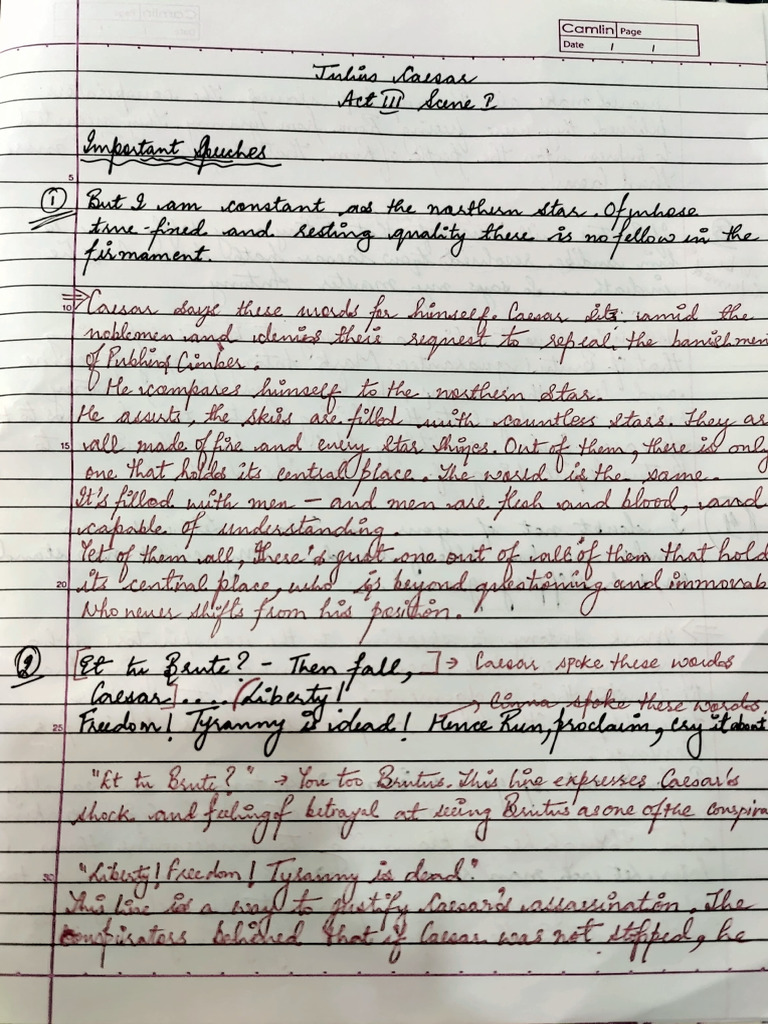 Camlin Page
Date / /
Julius Caesar
Act III Scene I
Important Speeches
5
① But I am constant as the northern star. Of whose
true-fined and resting quality there is no fellow in the
firmament.
⇒ Caesar says these words for himself. Caesar sits amid the
10
noblemen and denies their request to repeal the banishmen
of Publius Cimber.
He compares himself to the northern star.
He asserts, the skies are filled with countless stars. They ar
15 all made of fire and every star shines. Out of them, there is only
one that holds its central place. The world is the same.
It's filled with men - and men are flesh and blood, and
capable of understanding.
Yet of them all, there's just one out of all of them that hold
20 its central place, who is beyond questioning and immovab
Who never shifts from his position.
② [Et tu Brute? - Then fall, ] → Caesar spoke these words
Caesar] .... (Liberty! → Cinna spoke these words
25 Freedom! Tyranny is dead! Hence Run, proclaim, cry it about
"Et tu Brute?" → You too Brutus. This line expresses Caesar's
shock and feeling of betrayal at seeing Brutus as one of the conspira
30 "Liberty! Freedom! Tyranny is dead."
This line is a way to justify Caesar's assassinaton. The
conspirators believed that if Caesar was not stopped, he